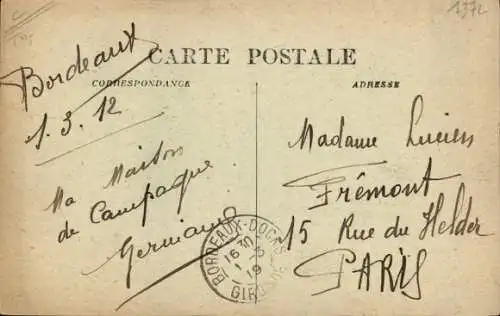 1372
Bordeaux
CARTE POSTALE
CORRESPONDANCE
ADRESSE
1.3.12
Ma Maison
de Campagne
Germaine
Madame Lucien
Frémont
15 Rue du Helder
PARIS
BORDEAUX-DOCKS
16 30
1 -3
GIRONDE